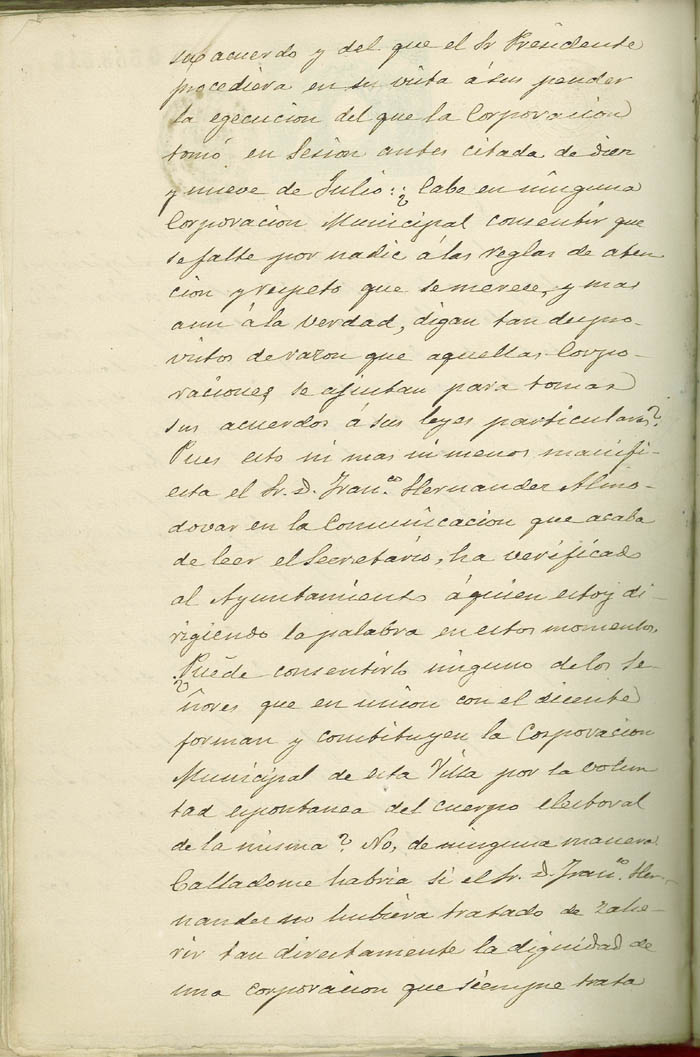 su acuerdo y del que el Sr Presidente
procediera en su vista á sus pender
la egecucion del que la Corporacion
tomó en Sesion antes citada de diez
y nueve de Julio: ¿Cabe en ninguna
Corporacion Municipal consentir que
se falte por nadie á las reglas de aten
cion y respeto que se merece, y mas
aun á la verdad, digan tan despro-
vistos de razon que aquellas Corpo-
raciones se ajustan para tomar
sus acuerdos á sus leyes particulares?
Pues esto ni mas ni menos manifi-
esta el Sr. D. Fran.co Hernandez Almo-
dovar en la Comunicacion que acaba
de leer el Secretario, ha verificado
al Ayuntamiento á quien estoy di-
rigiendo la palabra en estos momentos.
¿Puede consentirlo ninguno de los Se-
ñores que en union con el dicente
forman y constituyen la Corporacion
Municipal de esta Villa por la volun
tad espontanea del cuerpo electoral
de la misma? No, de ninguna manera
Calladome habria si el Sr. D. Fran.co Her-
nandez no hubiera tratado de zahe-
rir tan directamente la dignidad de
una corporacion que siempre trata